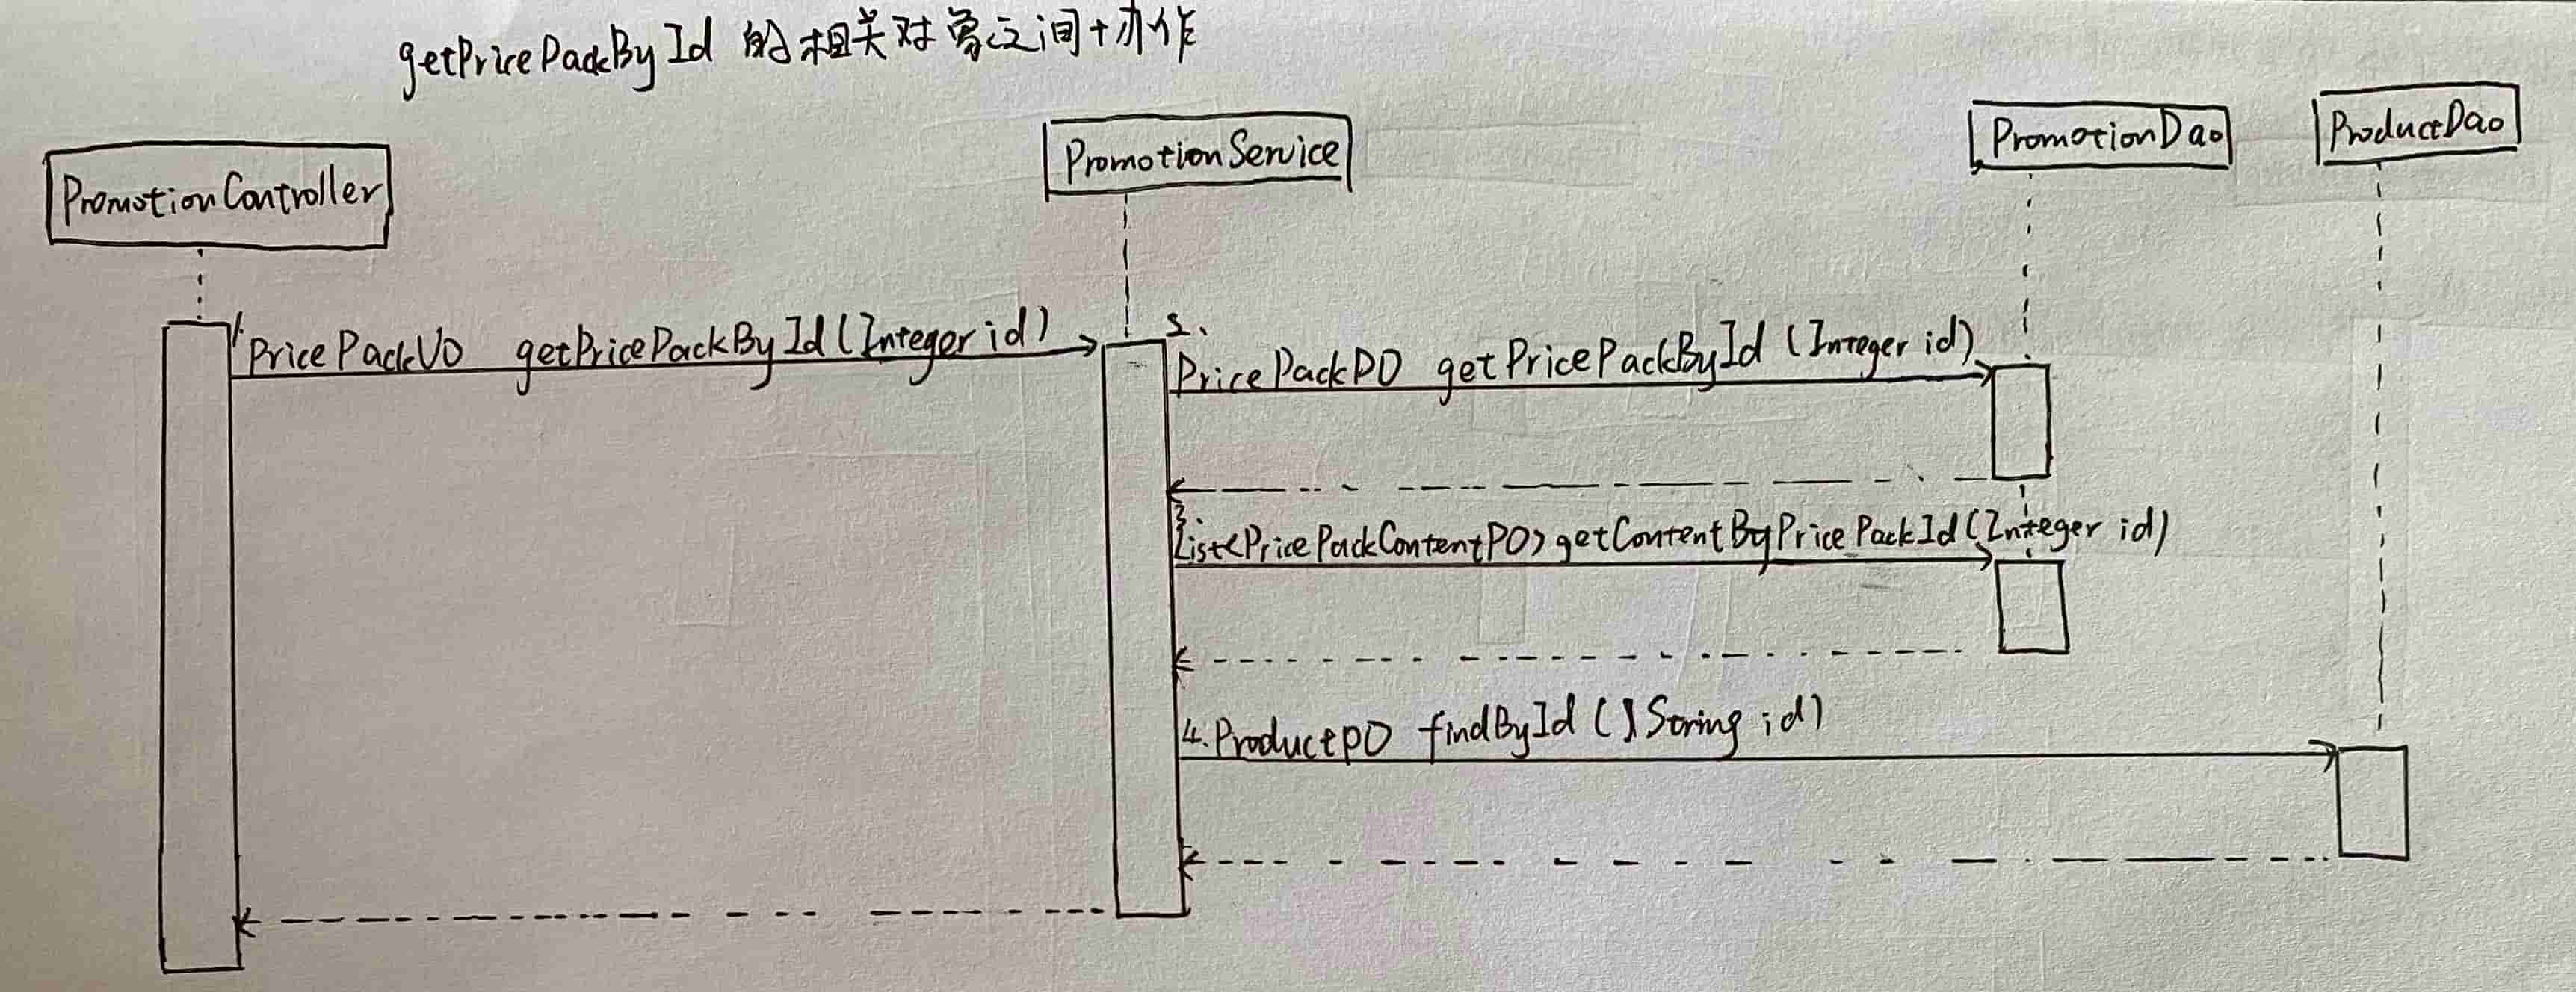 getPricePackById 的相关对象之间协作
PromotionController
PromotionService
PromotionDao
ProductDao
1. PricePackVO getPricePackById(Integer id)
2. PricePackPO getPricePackById (Integer id)
3. List<PricePackContentPO> getContentByPricePackId(Integer id)
4. ProductPO findById ( String id)